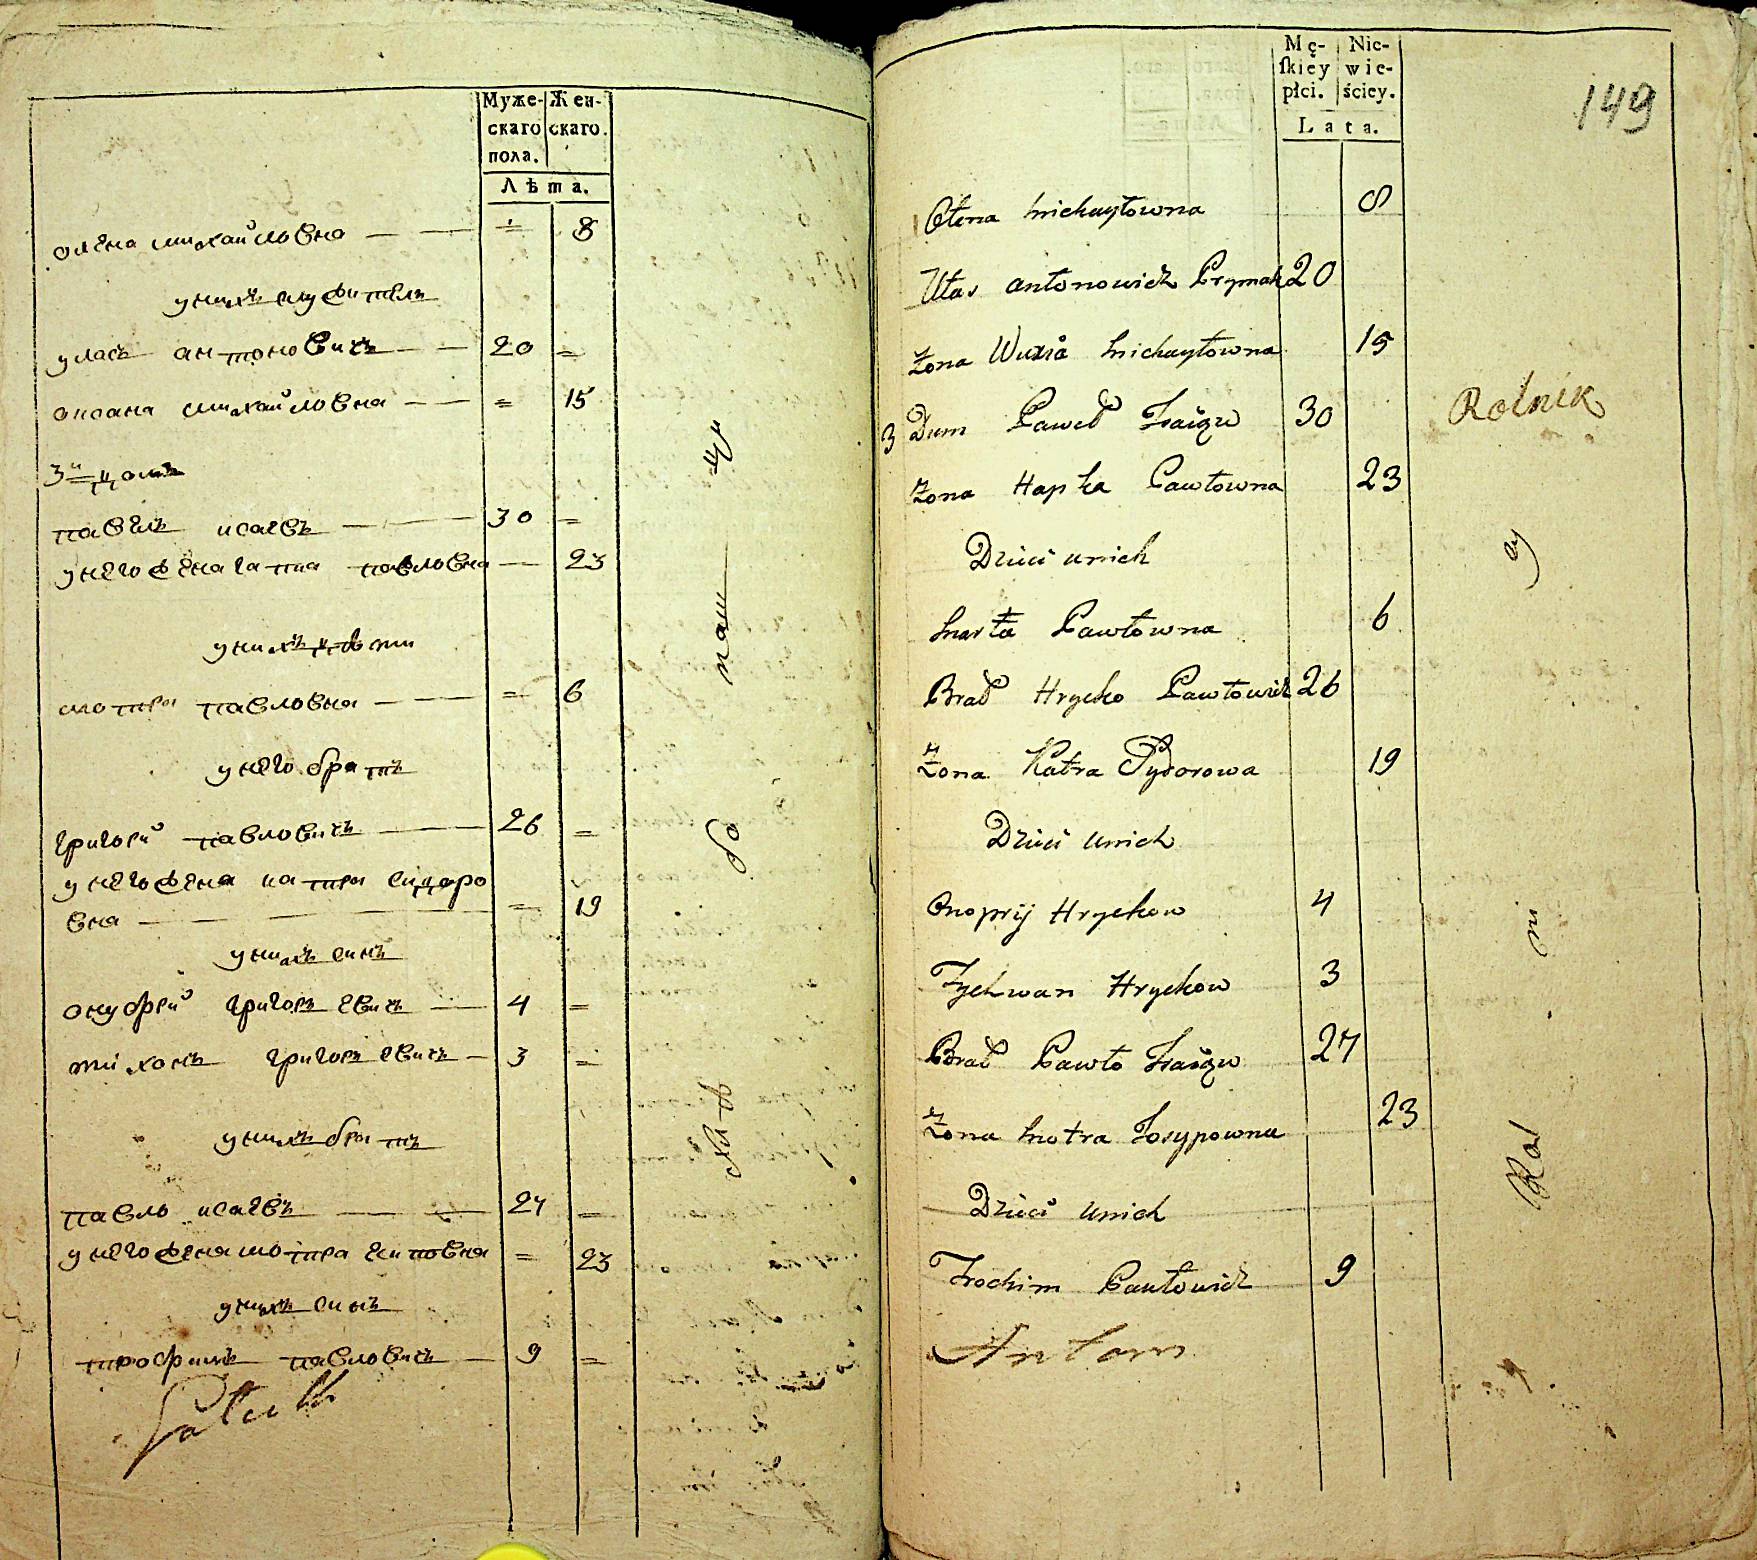 Муже- Жен-
скаго скаго.
пола.
Лѣта.
олена михайловна — — = 8
унихъ служитель
уласъ антоновичъ — — 20 =
оксана михайловна — — = 15
3й домъ
павелъ исаевъ — — 30 =
унего жена гапка павловна — 23
унихъ дѣти
мотра павловна — — = 6
унего братъ
григорій павловичъ — — 26 =
унего жена катра сидоро
вна — — = 19
унихъ синъ
онуфрій григорьевичъ — 4 =
тихонъ григорьевичъ — 3 =
унихъ братъ
павло исаевъ — — 27 =
унего жена мотра есиповна = 23
унихъ синъ
трофимъ павловичъ — 9 =
хлѣбопашци
149
Mę- Nie-
ſkiey wie-
płci. ściey.
Lata.
Ołena Michayłowna 8
Ułas Antonowicz Prymak 20
Żona Michayłowna 15
3 Dum Paweł Isaiow 30 Rolnik
Żona Hapka Pawłowna 23
Dzieci u nich
Pawłowna 6
Brat Hrycko Pawłowicz 26
Żona Katra Sydorowa 19
Dzieci u nich
Onoprij Hryckow 4
Hryckow 3
Brat Pawło Isaiow 27
Żona Motra Josypowna 23
Dzieci u nich
Trochim Pawłowicz 9
Antoni